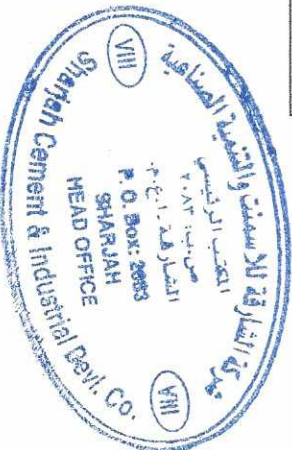 شركة الشارقة للأسمنت والتنمية الصناعية
VIII
VIII
المكتب الرئيسي
ص.ب: ٢٠٨٣
الشارقة - ا.ع.م.
P. O. BOX: 2083
SHARJAH
HEAD OFFICE
Sharjah Cement & Industrial Devl. Co.